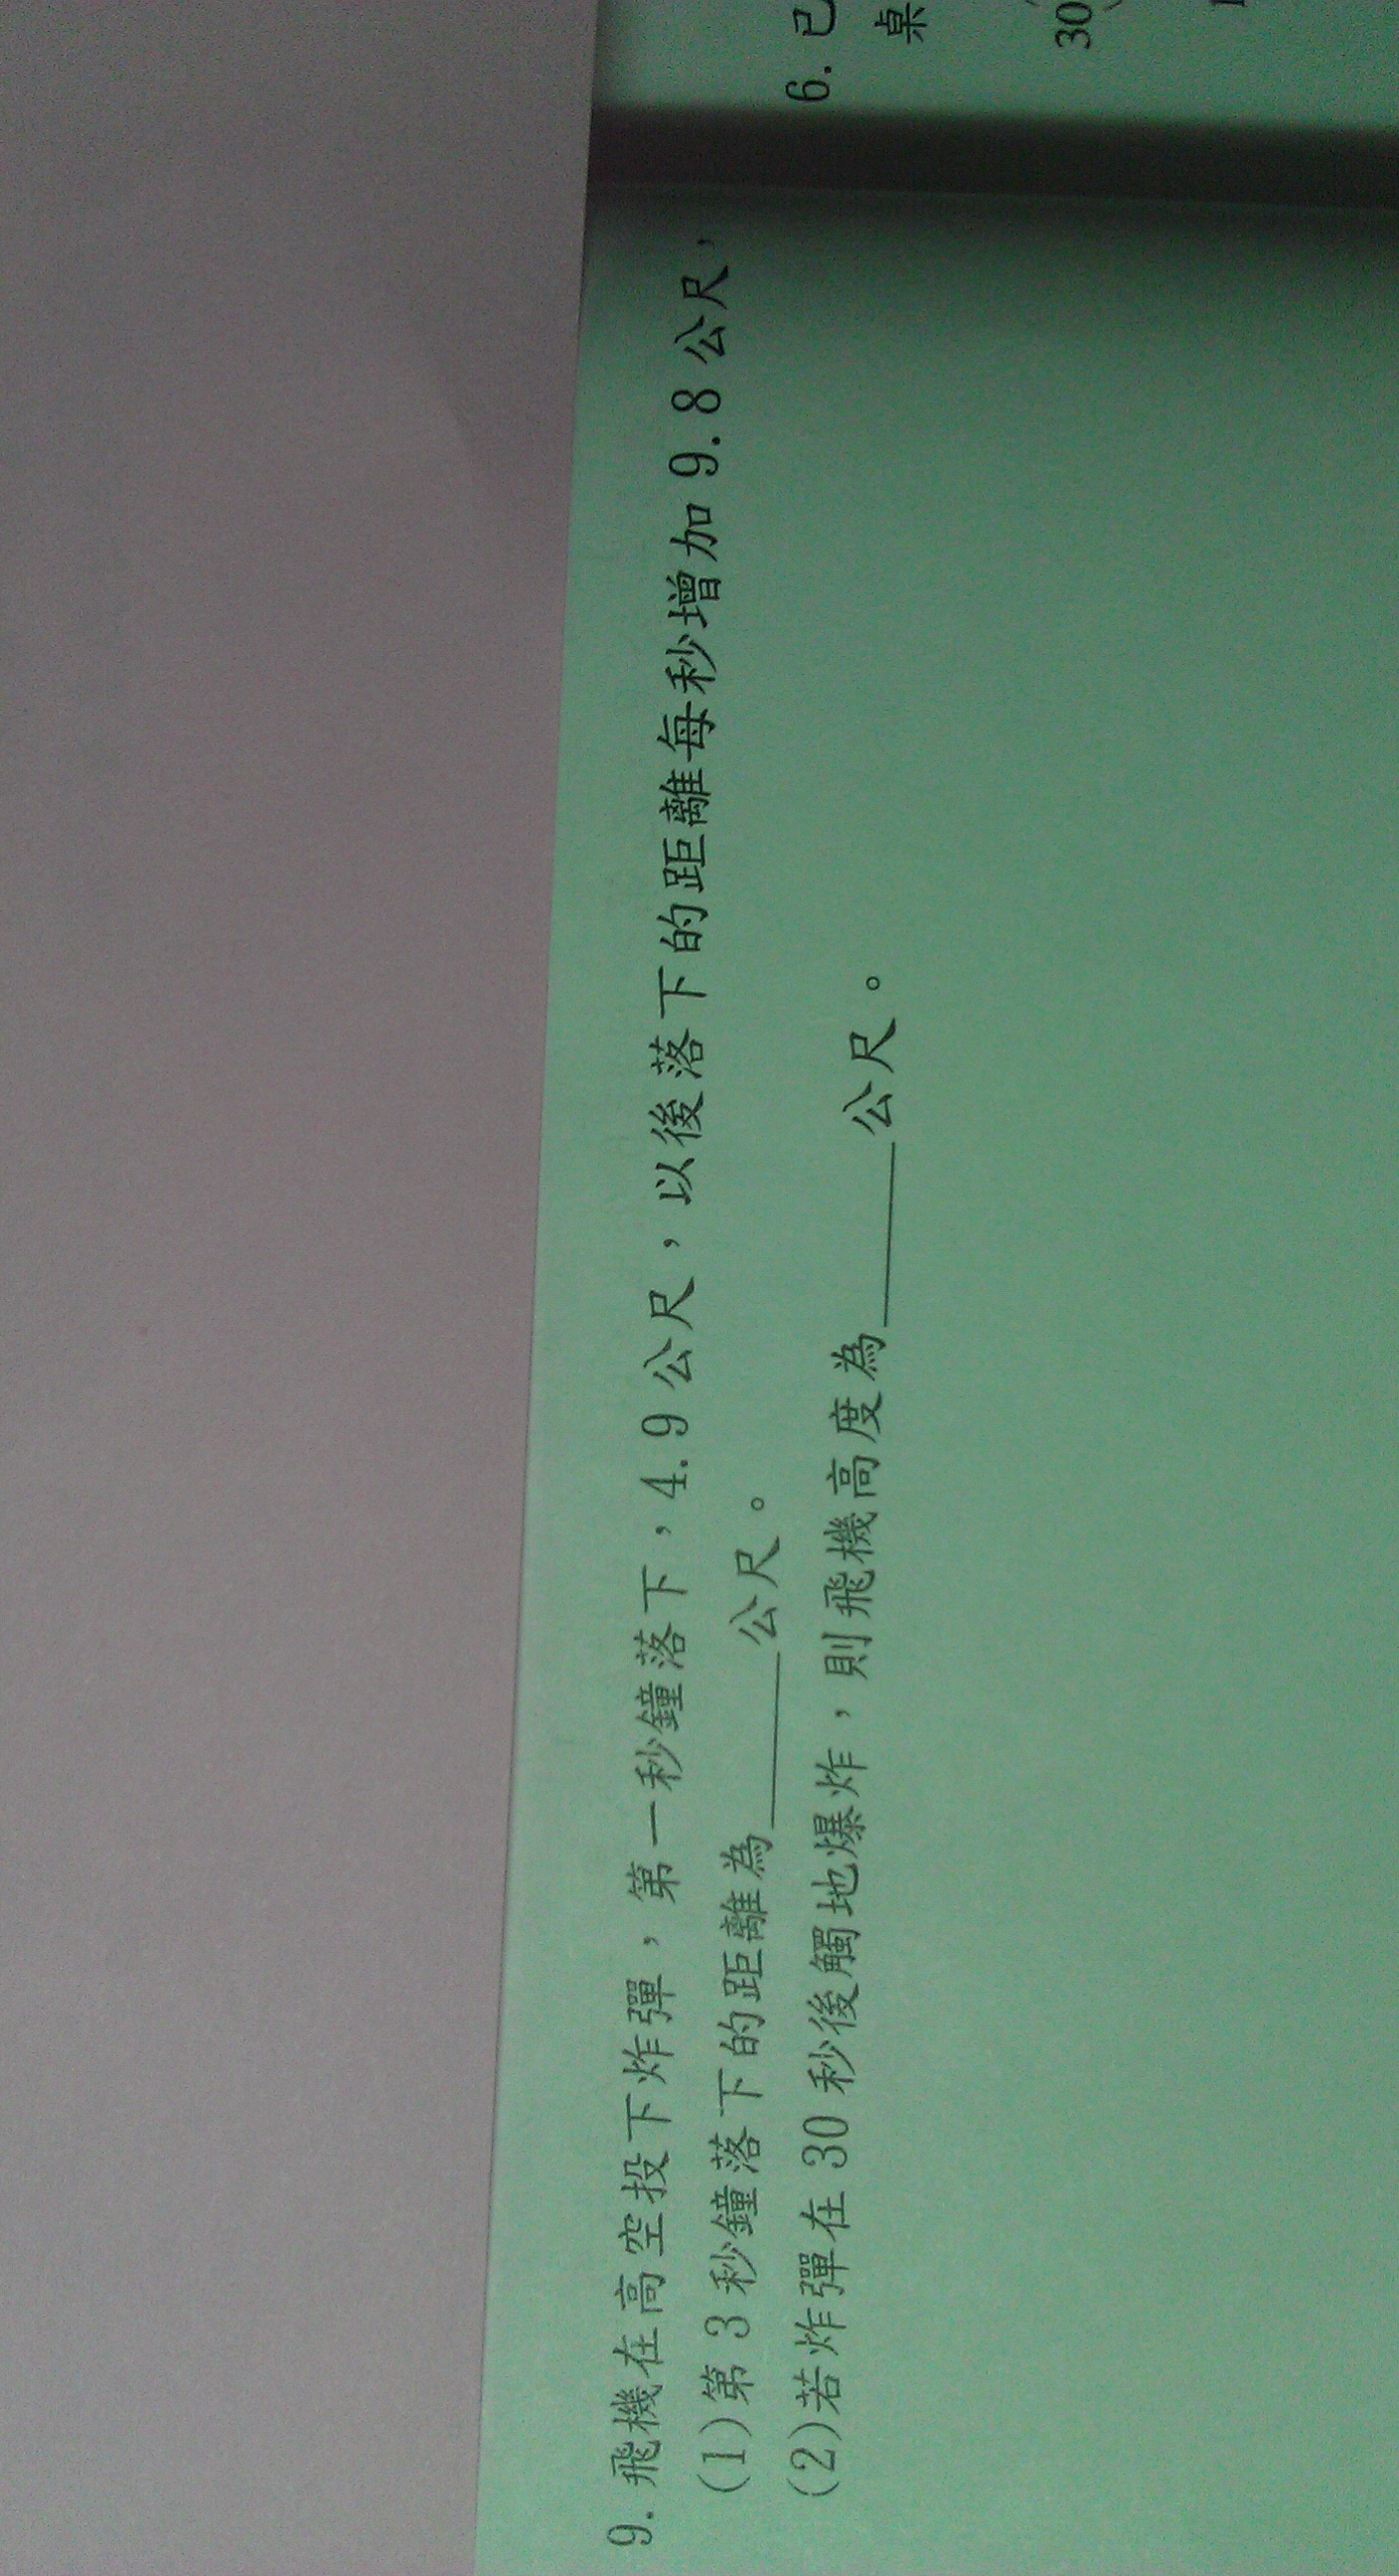 9. 飛機在高空投下炸彈，第一秒鐘落下，4.9 公尺，以後落下的距離每秒增加 9.8 公尺，
(1)第 3 秒鐘落下的距離為______公尺。
(2)若炸彈在 30 秒後觸地爆炸，則飛機高度為______公尺。
6. 已
桌
30